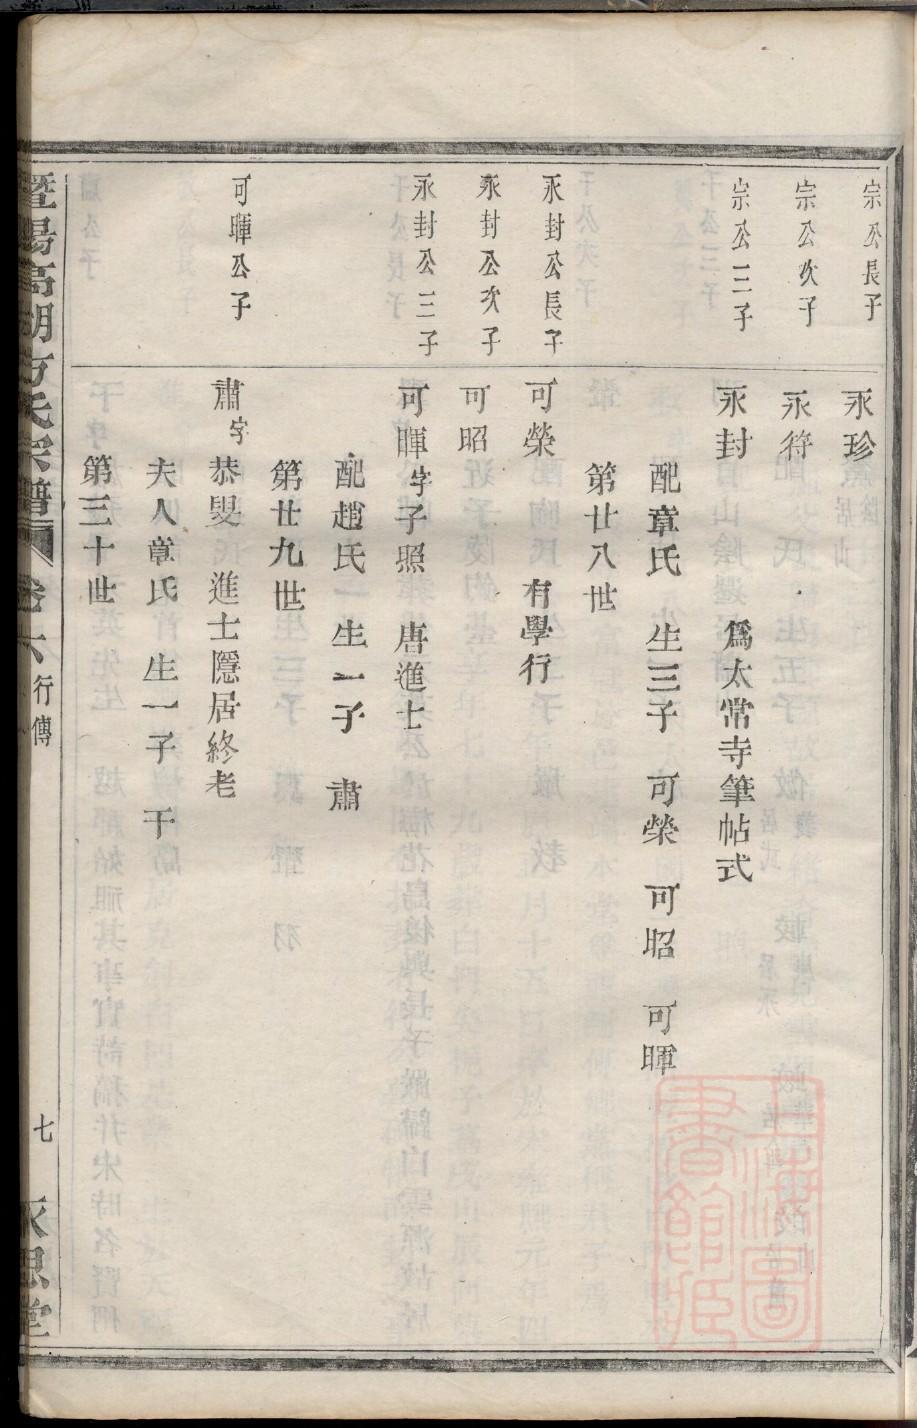 宗公長子
永珍
宗公次子
永符
宗公三子
永封 爲太常寺筆帖式
配章氏 生三子 可榮 可昭 可暉
第廿八世
永封公長子
可榮 有學行
永封公次子
可昭
永封公三子
可暉字子照 唐進士
配趙氏 生一子 肅
第廿九世
可暉公子
肅字恭叟 進士隱居終老
夫人章氏 生一子 干
第三十世
暨陽高湖方氏宗譜 卷六 行傳 七 永思堂